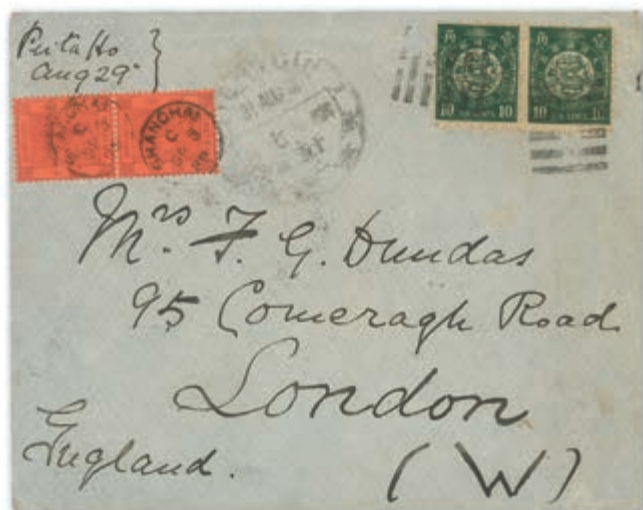 Peitaho
Aug 29
SHANGHAI
C
31 AUG
10 10
10
Mrs. F. G. Dundas
95 Comeragh Road
London
(W)
England.